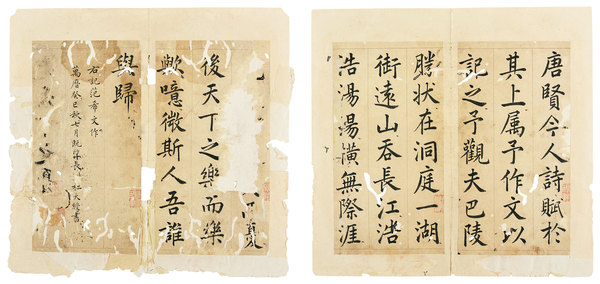 唐賢今人詩賦於
其上属予作文以
記之予觀夫巴陵
勝状在洞庭一湖
銜遠山吞長江浩
浩湯湯橫無際涯
後天下之樂而樂
歟噫微斯人吾誰
與歸
右記范希文作
萬曆癸巳秋七月既望長杜大綬書